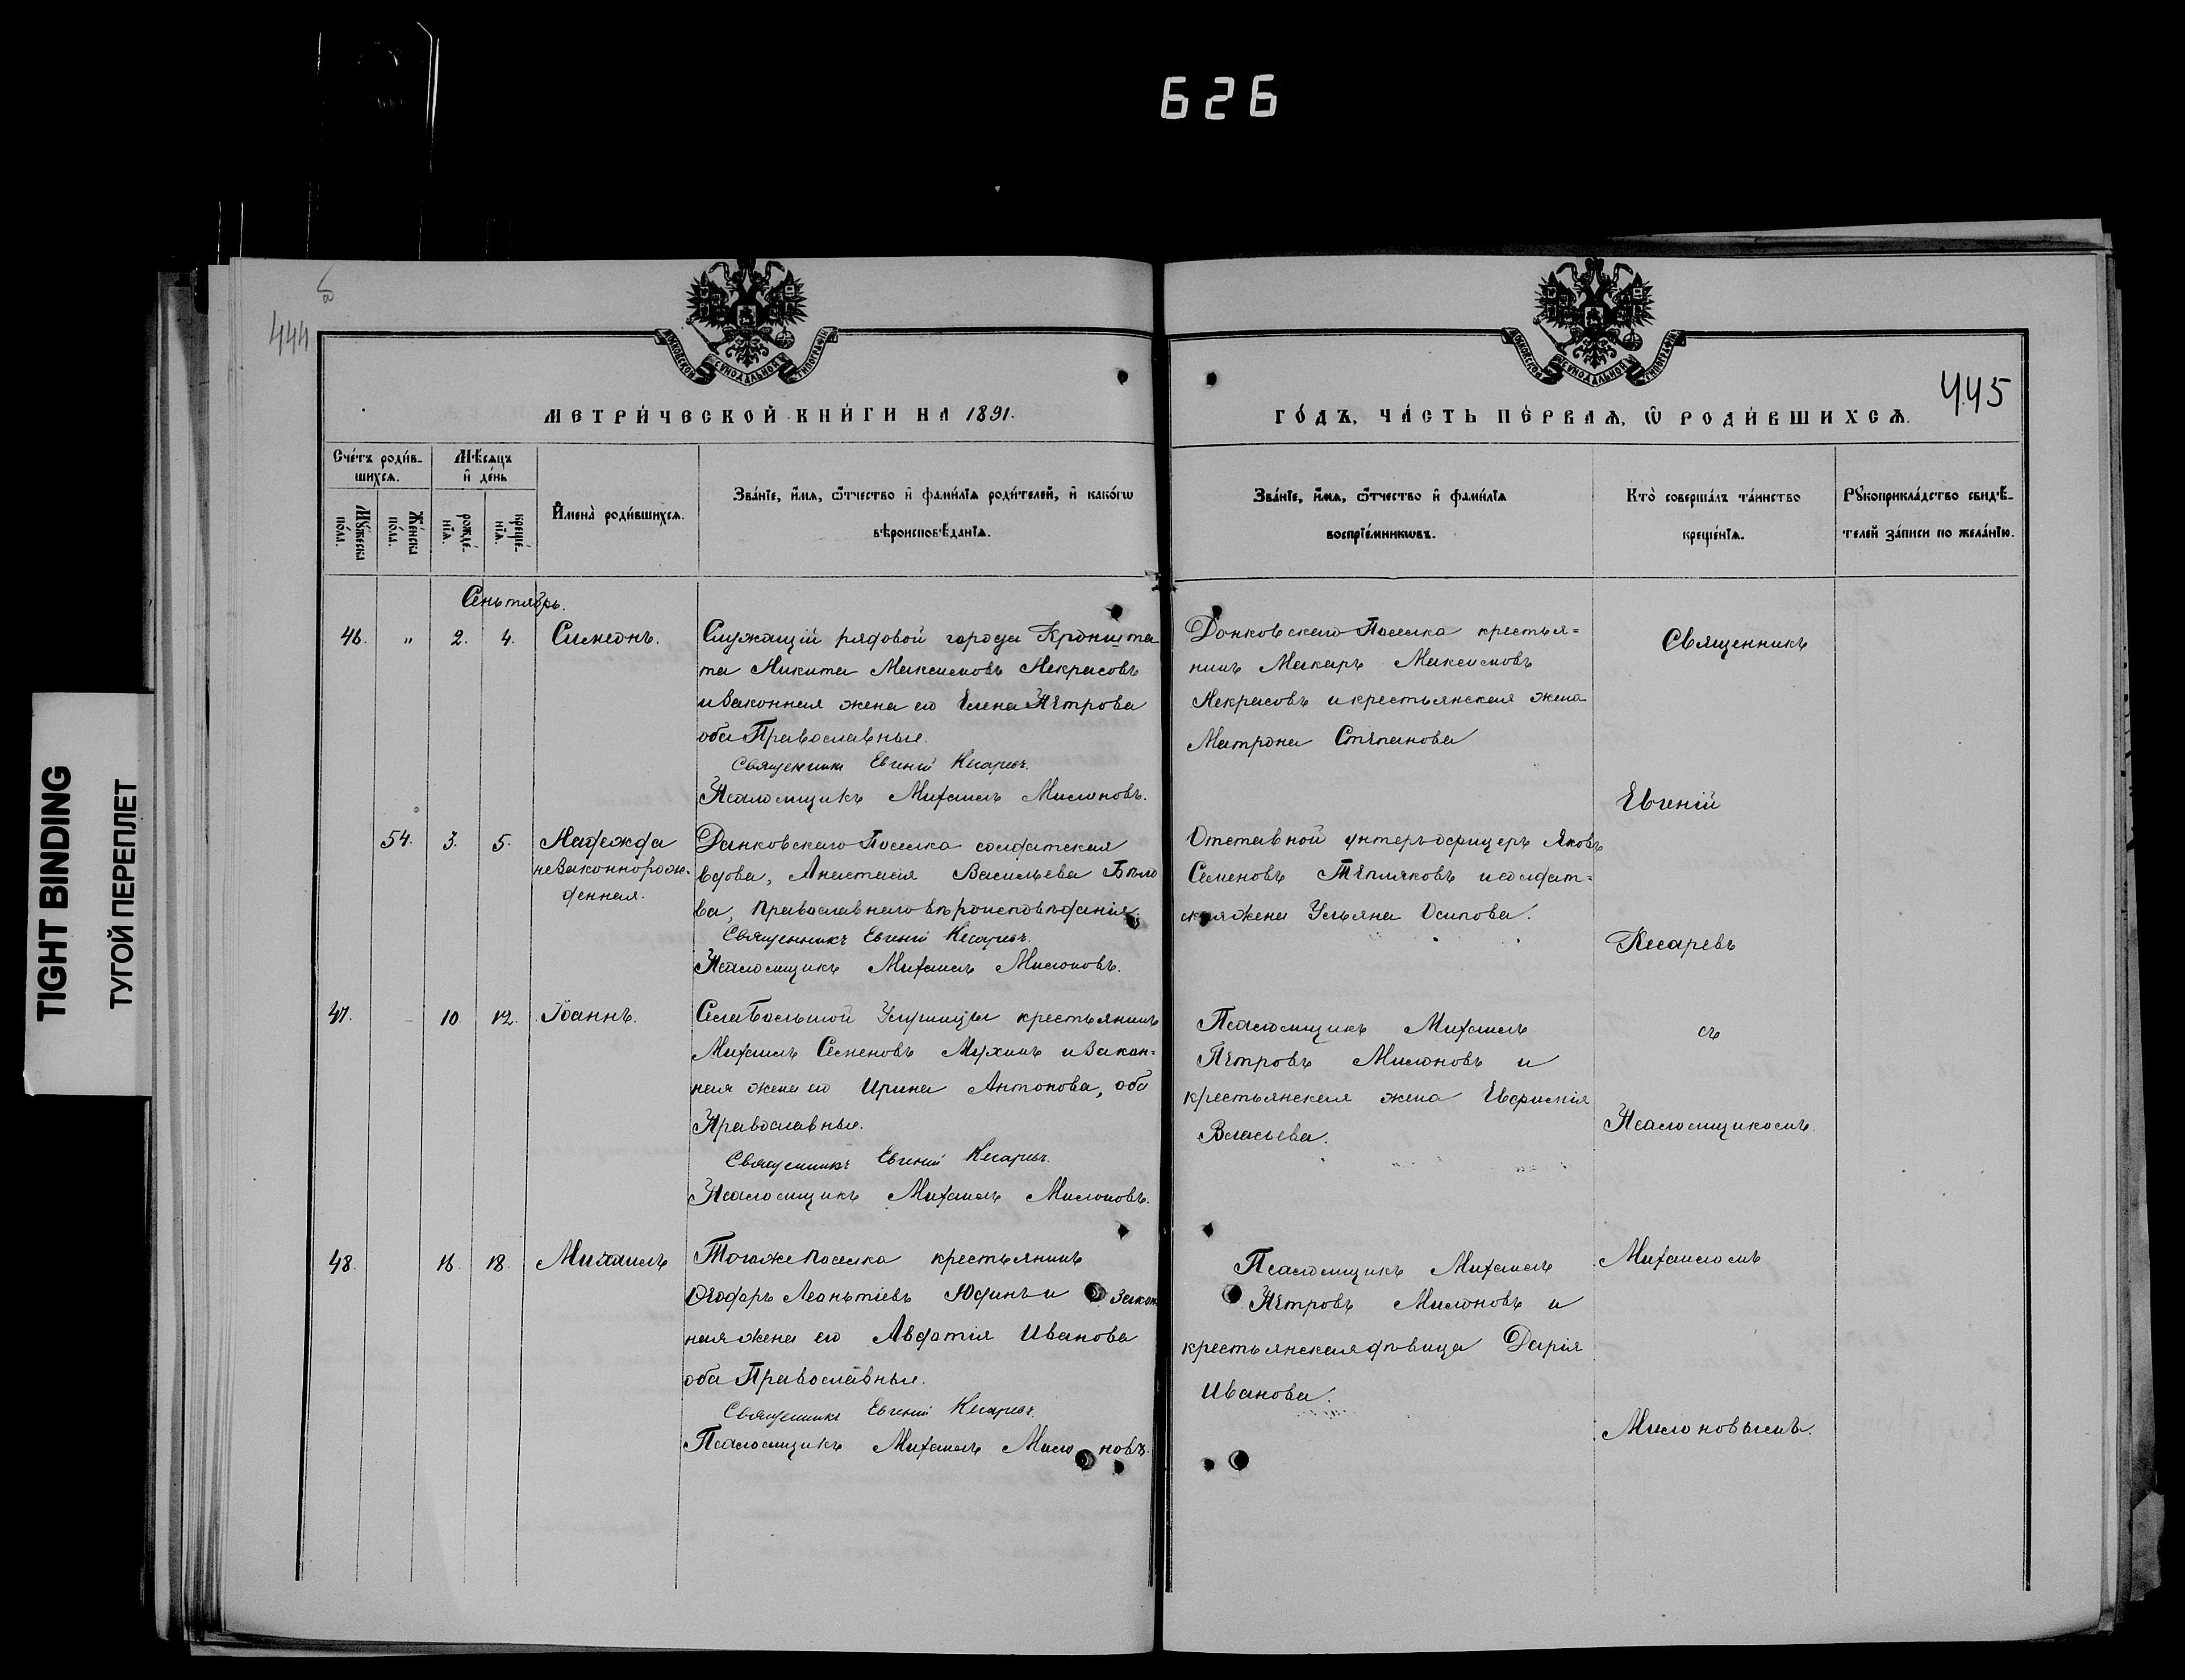 626
TIGHT BINDING
ТУГОЙ ПЕРЕПЛЕТ
444
445
МОСКОВСКОЙ СѴНОДАЛЬНОЙ ТИПОГРАФІИ
МОСКОВСКОЙ СѴНОДАЛЬНОЙ ТИПОГРАФІИ
МЕТРИ́ЧЕСКОЙ КНИ́ГИ НА 1891.
ГО́ДЪ, ЧА́СТЬ ПЕ́РВАѦ, Ѿ РОДИ́ВШИХСѦ.
Сче́тъ роди́в-
шихсѧ.
Мꙋ́жеска по́ла.
Же́нска по́ла.
Мѣ́сѧцъ
и҆ де́нь
рожде́-
нїѧ.
креще́-
нїѧ.
И҆мена̀ роди́вшихсѧ.
Зва́нїе, и҆́мѧ, ѻ҆́тчество и҆ фами́лїѧ роди́телей, и҆ како́гѡ
вѣроисповѣ́данїѧ.
Зва́нїе, и҆́мѧ, ѻ҆́тчество и҆ фами́лїѧ
воспрїе́мникѡвъ.
Кто̀ соверша́лъ та́инство
креще́нїѧ.
Рꙋкоприкла́дство свидѣ́-
телей за́писи по жела́нїю.
Сеньтябрь.
46. " 2. 4. Симеонъ.
Служащій рядовой города Кроншта
та Никита Максимовъ Некрасовъ
и законная жена его Елена Петрова
оба Православные.
Священникъ Евгеній Кесаревъ.
Псаломщикъ Михаилъ Милоновъ.
Донковскаго Поселка крестья=
нинъ Макаръ Максимовъ
Некрасовъ и крестьянская жена
Матрона Степанова
54. 3. 5. Надежда
незаконнорож-
денная.
Данковскаго Поселка солдатская
вдова, Анастасія Васильева Бѣло
ва, Православнаго вѣроисповѣданія.
Священникъ Евгеній Кесаревъ.
Псаломщикъ Михаилъ Милоновъ.
Отставной унтеръ-офицеръ Яковъ
Семеновъ Тепляковъ и солдат=
ская жена Ульяна Осипова.
47. 10 12. Іоаннъ.
Села Большой крестьянинъ
Михаилъ Семеновъ Мухинъ и закон=
ная жена его Ирина Антонова, оба
Православные.
Священникъ Евгеній Кесаревъ.
Псаломщикъ Михаилъ Милоновъ.
Псаломщикъ Михаилъ
Петровъ Милоновъ и
крестьянская жена Евфимія
Власьева.
48. 16. 18. Михаилъ
Тогоже поселка крестьянинъ
Ѳеодоръ Леоньтіевъ Юдинъ и закон
ная жена его Авдотія Иванова
оба Православные.
Священникъ Евгеній Кесаревъ.
Псаломщикъ Михаилъ Милоновъ.
Псаломщикъ Михаилъ
Петровъ Милоновъ и
крестьянская дѣвица Дарія
Иванова.
Священникъ
Евгеній
Кесаревъ
съ
Псаломщикомъ
Михаиломъ
Милоновымъ.